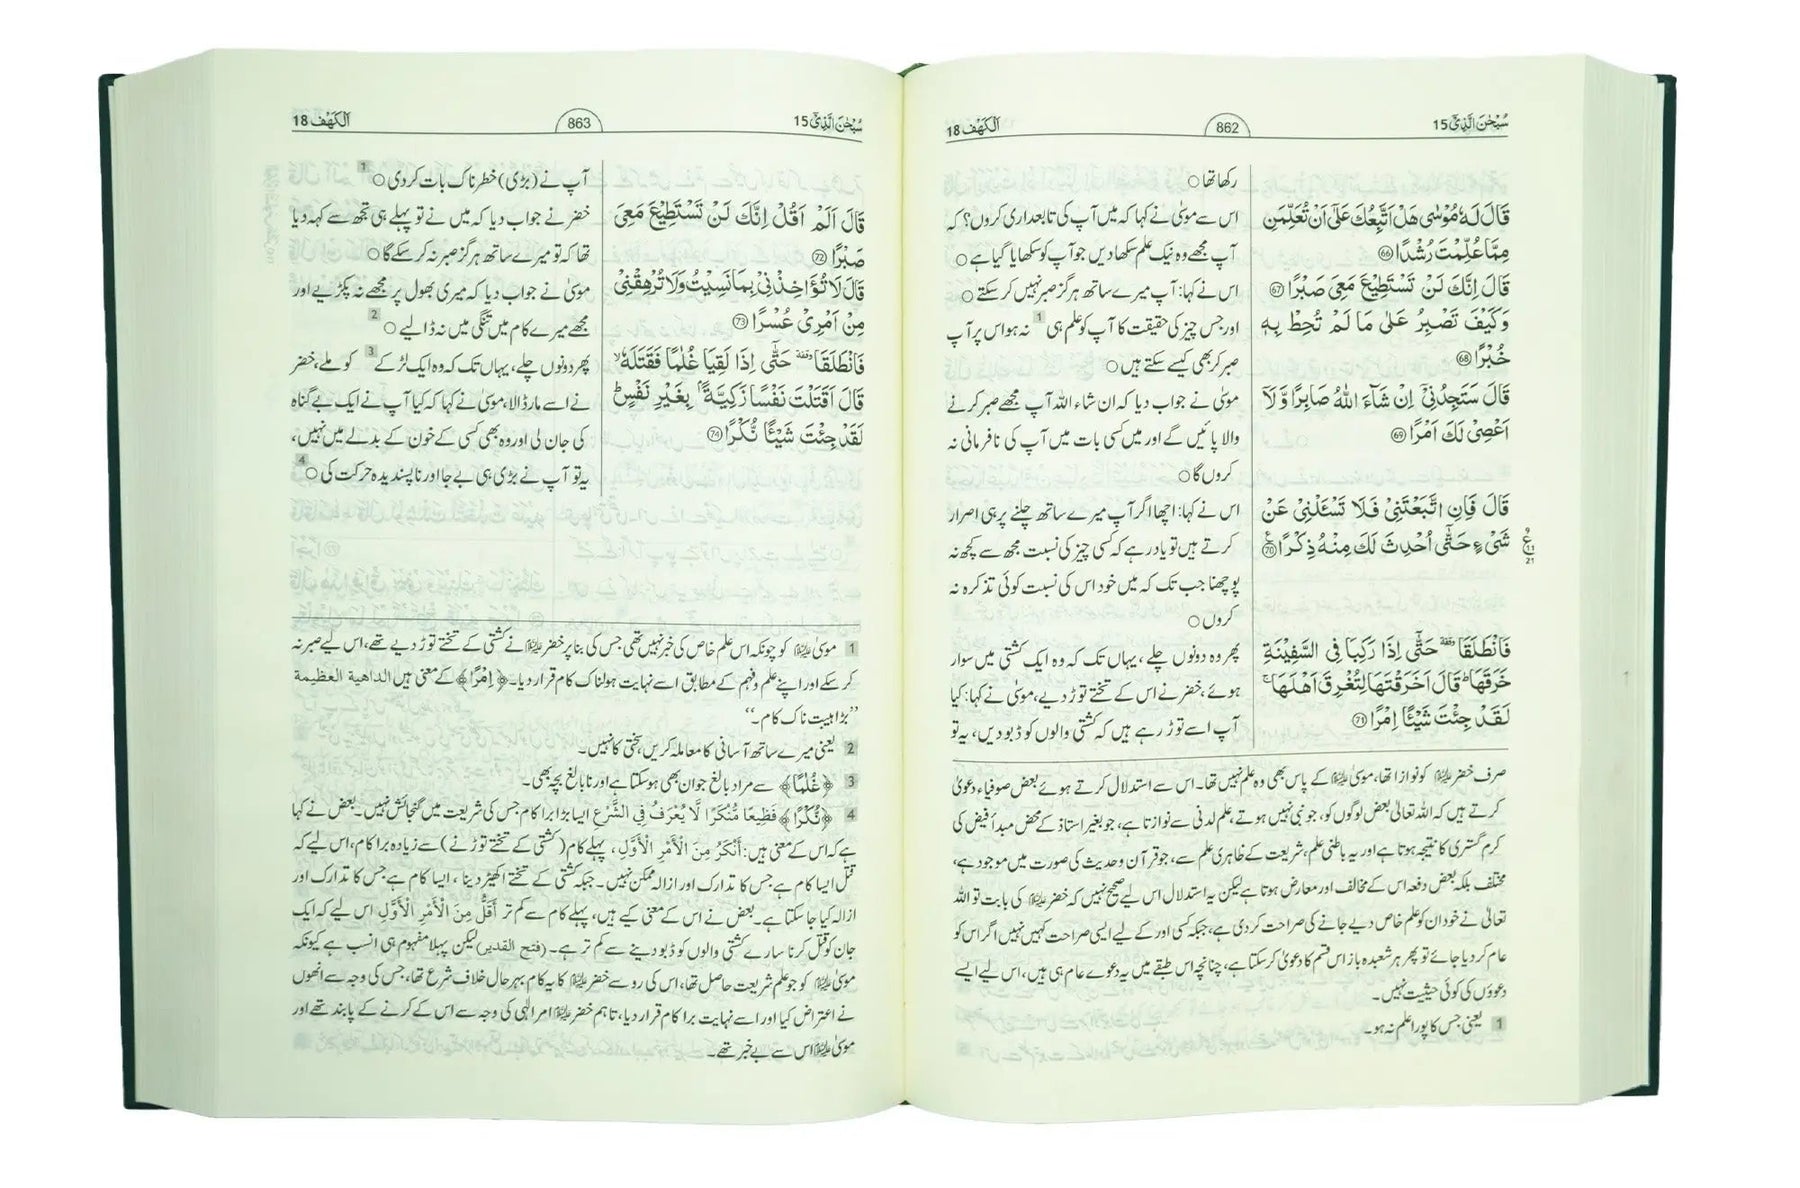 سُبْحٰنَ الَّذِیْۤ 15
862
اَلْكَهْف 18
قَالَ لَهٗ مُوْسٰى هَلْ اَتَّبِعُكَ عَلٰۤى اَنْ تُعَلِّمَنِ
مِمَّا عُلِّمْتَ رُشْدًا ﴿66﴾
قَالَ اِنَّكَ لَنْ تَسْتَطِیْعَ مَعِیَ صَبْرًا ﴿67﴾
وَ كَیْفَ تَصْبِرُ عَلٰى مَا لَمْ تُحِطْ بِهٖ
خُبْرًا ﴿68﴾
قَالَ سَتَجِدُنِیْۤ اِنْ شَآءَ اللّٰهُ صَابِرًا وَّ لَاۤ
اَعْصِیْ لَكَ اَمْرًا ﴿69﴾
قَالَ فَاِنِ اتَّبَعْتَنِیْ فَلَا تَسْـَٔلْنِیْ عَنْ
شَیْءٍ حَتّٰۤى اُحْدِثَ لَكَ مِنْهُ ذِكْرًا ﴿70﴾
فَانْطَلَقَا حَتّٰۤى اِذَا رَكِبَا فِی السَّفِیْنَةِ
خَرَقَهَا قَالَ اَخَرَقْتَهَا لِتُغْرِقَ اَهْلَهَا
لَقَدْ جِئْتَ شَیْـًٔا اِمْرًا ﴿71﴾
رکھا تھا ○
اس سے موسیٰ نے کہا کہ میں آپ کی تابعداری کروں؟ کہ
آپ مجھے وہ نیک علم سکھا دیں جو آپ کو سکھایا گیا ہے ○
اس نے کہا: آپ میرے ساتھ ہرگز صبر نہیں کر سکتے ○
اور جس چیز کی حقیقت کا آپ کو علم ہی 1 نہ ہو اس پر آپ
صبر کر بھی کیسے سکتے ہیں ○
موسیٰ نے جواب دیا کہ ان شاء اللہ آپ مجھے صبر کرنے
والا پائیں گے اور میں کسی بات میں آپ کی نافرمانی نہ
کروں گا ○
اس نے کہا: اچھا اگر آپ میرے ساتھ چلنے پر ہی اصرار
کرتے ہیں تو یاد رہے کہ کسی چیز کی نسبت مجھ سے کچھ نہ
پوچھنا جب تک کہ میں خود اس کی نسبت کوئی تذکرہ نہ
کروں ○
پھر وہ دونوں چلے، یہاں تک کہ وہ ایک کشتی میں سوار
ہوئے، خضر نے اس کے تختے توڑ دیے، موسیٰ نے کہا: کیا
آپ اسے توڑ رہے ہیں کہ کشتی والوں کو ڈبو دیں، یہ تو
صرف خضر علیہ السلام کو نوازا تھا، موسیٰ علیہ السلام کے پاس بھی وہ علم نہیں تھا۔ اس سے استدلال کرتے ہوئے بعض صوفیاء دعویٰ
کرتے ہیں کہ اللہ تعالیٰ بعض لوگوں کو، جو نبی نہیں ہوتے، علم لدنی سے نوازتا ہے، جو بغیر استاذ کے محض مبدأ فیض کی
کرم گستری کا نتیجہ ہوتا ہے اور یہ باطنی علم، شریعت کے ظاہری علم سے، جو قرآن و حدیث کی صورت میں موجود ہے،
مختلف بلکہ بعض دفعہ اس کے مخالف اور معارض ہوتا ہے لیکن یہ استدلال اس لیے صحیح نہیں کہ خضر علیہ السلام کی بابت تو اللہ
تعالیٰ نے خود ان کو علم خاص دیے جانے کی صراحت کر دی ہے، جبکہ کسی اور کے لیے ایسی صراحت کہیں نہیں اگر اس کو
عام کر دیا جائے تو پھر ہر شعبدہ باز اس قسم کا دعویٰ کر سکتا ہے، چنانچہ اس طبقے میں یہ دعوے عام ہی ہیں، اس لیے ایسے
دعووں کی کوئی حیثیت نہیں۔
1 یعنی جس کا پورا علم نہ ہو۔
سُبْحٰنَ الَّذِیْۤ 15
863
اَلْكَهْف 18
قَالَ اَلَمْ اَقُلْ اِنَّكَ لَنْ تَسْتَطِیْعَ مَعِیَ
صَبْرًا ﴿72﴾
قَالَ لَا تُؤَاخِذْنِیْ بِمَا نَسِیْتُ وَ لَا تُرْهِقْنِیْ
مِنْ اَمْرِیْ عُسْرًا ﴿73﴾
فَانْطَلَقَا حَتّٰۤى اِذَا لَقِیَا غُلٰمًا فَقَتَلَهٗ
قَالَ اَقَتَلْتَ نَفْسًا زَكِیَّةًۢ بِغَیْرِ نَفْسٍ
لَقَدْ جِئْتَ شَیْـًٔا نُّكْرًا ﴿74﴾
آپ نے (بڑی) خطرناک بات کر دی ○ 1
خضر نے جواب دیا کہ میں نے تو پہلے ہی تجھ سے کہہ دیا
تھا کہ تو میرے ساتھ ہرگز صبر نہ کر سکے گا ○
موسیٰ نے جواب دیا کہ میری بھول پر مجھے نہ پکڑیے اور
مجھے میرے کام میں تنگی میں نہ ڈالیے ○ 2
پھر دونوں چلے، یہاں تک کہ وہ ایک لڑکے 3 کو ملے، خضر
نے اسے مار ڈالا، موسیٰ نے کہا کہ کیا آپ نے ایک بے گناہ
کی جان لی اور وہ بھی کسی کے خون کے بدلے میں نہیں،
یہ تو آپ نے بڑی ہی بے جا اور ناپسندیدہ حرکت کی ○ 4
1 موسیٰ علیہ السلام کو چونکہ اس علم خاص کی خبر نہیں تھی جس کی بنا پر خضر علیہ السلام نے کشتی کے تختے توڑ دیے تھے، اس لیے صبر نہ
کر سکے اور اپنے علم و فہم کے مطابق اسے نہایت ہولناک کام قرار دیا۔ ﴿اِمْرًا﴾ کے معنی ہیں الداهية العظيمة
”بڑا ہیبت ناک کام۔“
2 یعنی میرے ساتھ آسانی کا معاملہ کریں، سختی کا نہیں۔
3 ﴿غُلٰمًا﴾ سے مراد بالغ جوان بھی ہو سکتا ہے اور نابالغ بچہ بھی۔
4 ﴿نُكْرًا﴾ فَظِيعًا مُّنْكَرًا لَّا يُعْرَفُ فِي الشَّرْعِ ایسا بڑا برا کام جس کی شریعت میں گنجائش نہیں۔ بعض نے کہا
ہے کہ اس کے معنی ہیں: أَنْكَرُ مِنَ الْأَمْرِ الْأَوَّلِ، پہلے کام (کشتی کے تختے توڑنے) سے زیادہ برا کام، اس لیے کہ
قتل ایسا کام ہے جس کا تدارک اور ازالہ ممکن نہیں۔ جبکہ کشتی کے تختے اکھیڑ دینا، ایسا کام ہے جس کا تدارک اور
ازالہ کیا جا سکتا ہے۔ بعض نے اس کے معنی کیے ہیں، پہلے کام سے کم تر أَقَلُّ مِنَ الْأَمْرِ الْأَوَّلِ اس لیے کہ ایک
جان کو قتل کرنا سارے کشتی والوں کو ڈبو دینے سے کم تر ہے۔ (فتح القدیر) لیکن پہلا مفہوم ہی انسب ہے کیونکہ
موسیٰ علیہ السلام کو جو علم شریعت حاصل تھا، اس کی رو سے خضر علیہ السلام کا یہ کام بہرحال خلاف شرع تھا، جس کی وجہ سے انھوں
نے اعتراض کیا اور اسے نہایت برا کام قرار دیا، تاہم خضر علیہ السلام امر الٰہی کی وجہ سے اس کے کرنے کے پابند تھے اور
موسیٰ علیہ السلام اس سے بے خبر تھے۔